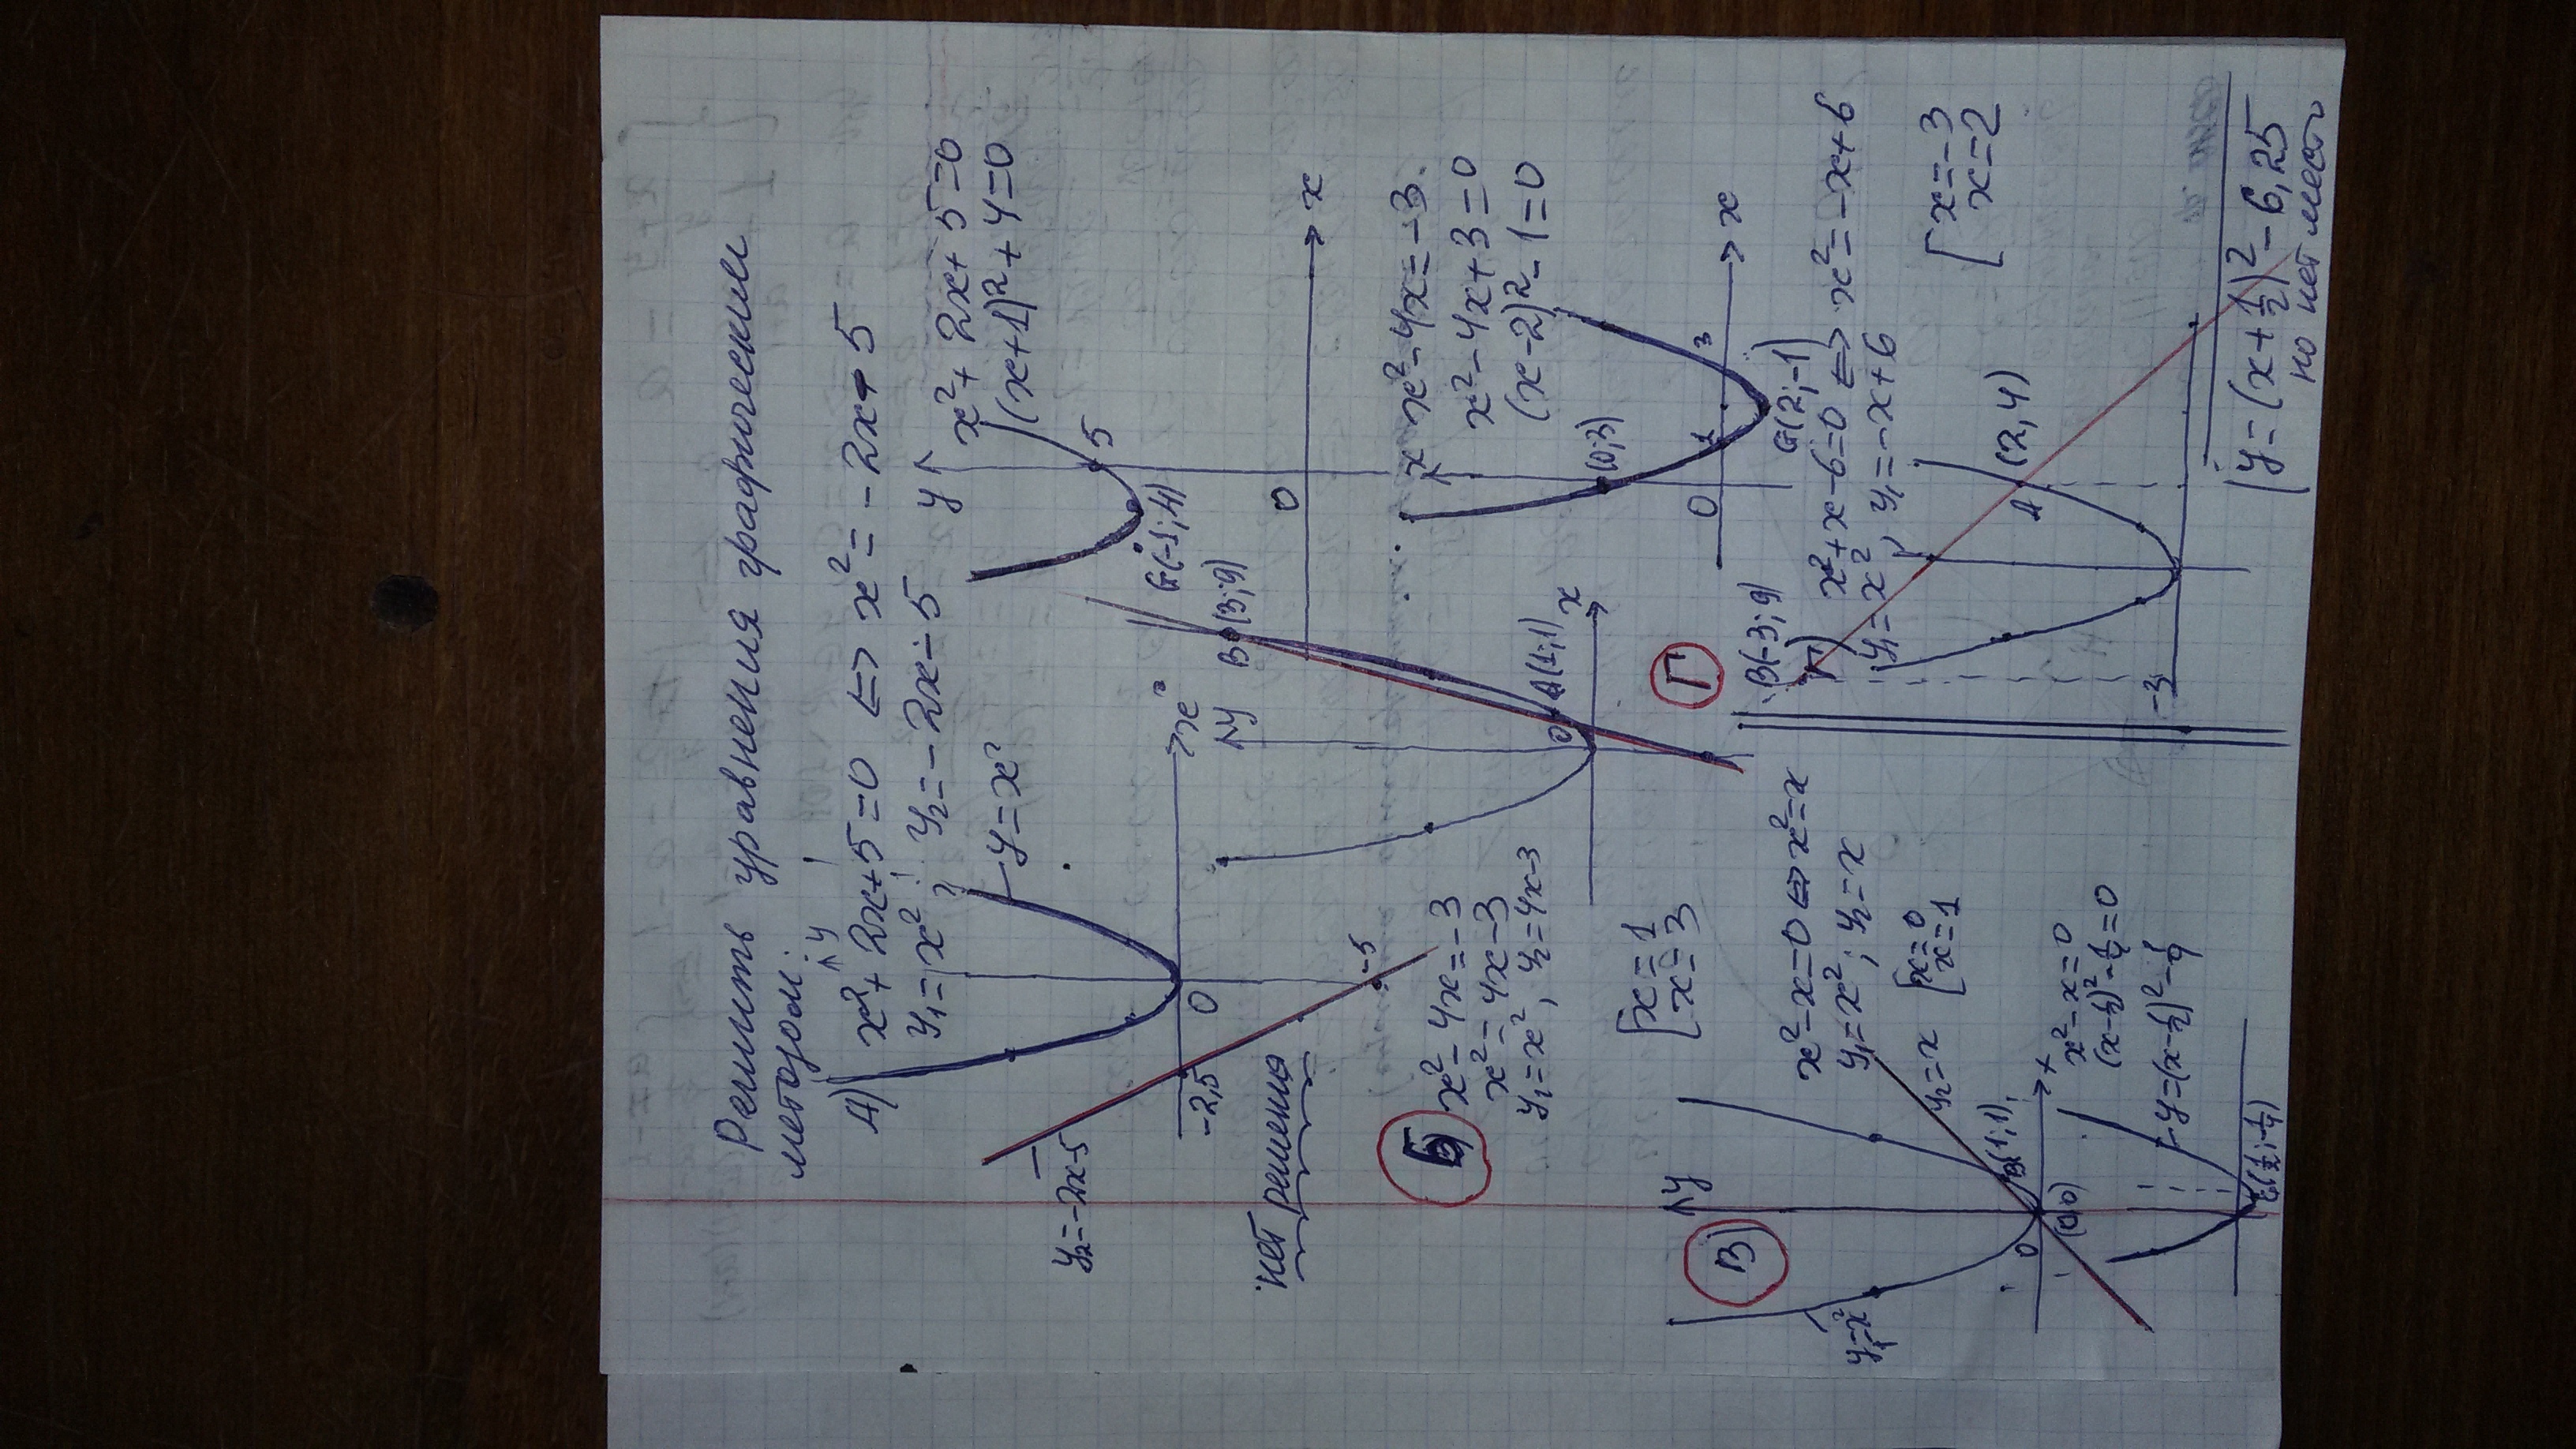 Решить уравнения графическим
методом:
А) x²+2x+5=0 <=> x²=-2x+5
y₁=x²; y₂=-2x-5
x²+2x+5=0
(x+1)²+4=0
y
y=x²
x
0
-2,5
-5
y₂=-2x-5
нет решения
y
5
G(-1;4)
0
x
Б) x²-4x=-3
x²=4x-3
y₁=x², y₂=4x-3
[x=1
x=3
y
B(3;9)
A(1;1)
0
x
x²-4x=-3
x²-4x+3=0
(x-2)²-1=0
(0;3)
0
1
3
x
G(2;-1)
В)
y
y₁=x²
x²-x=0 <=> x²=x
y₁=x²; y₂=x
y₂=x
[x=0
x=1
B(1;1)
0
(0;0)
x
x²-x=0
(x-½)²-¼=0
y=(x-½)²-¼
G(½;-¼)
Г)
x²+x-6=0 <=> x²=-x+6
y₁=x², y₁=-x+6
B(-3;9)
[x=-3
x=2
A
(2,4)
-3
y=(x+½)²-6,25
но нет места